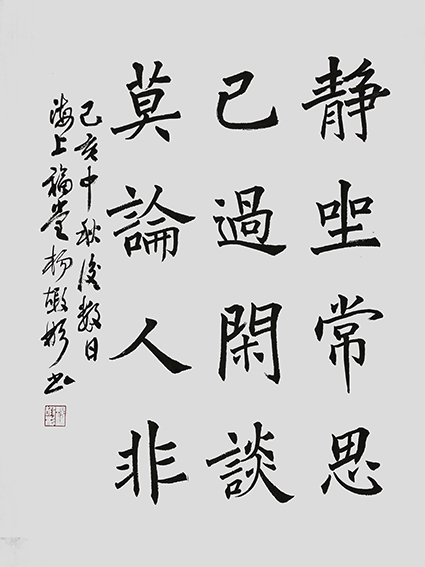 靜坐常思
己過閑談
莫論人非
己亥中秋後数日
海上福堂楊敏彬书